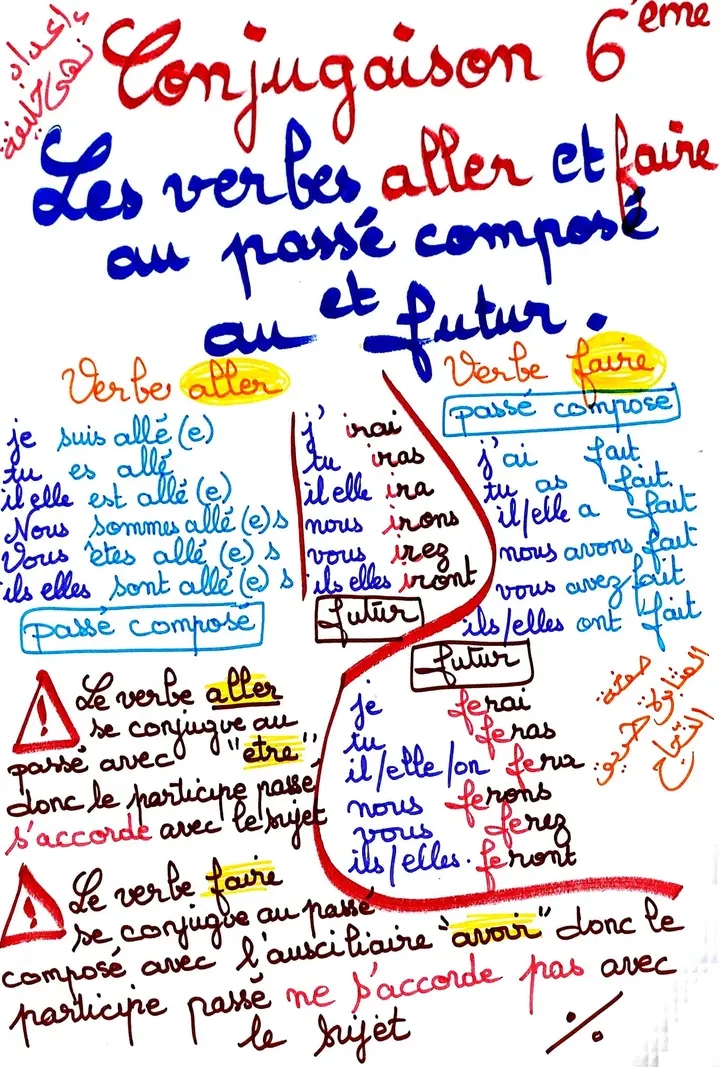 إعداد
نهى خليفة
Conjugaison 6ème
Les verbes aller et faire
au passé composé
et
au futur.
Verbe aller
je suis allé(e)
tu es allé
il elle est allé(e)
Nous sommes allé(e)s
Vous êtes allé(e)s
ils elles sont allé(e)s
passé composé
j' irai
tu iras
il elle ira
nous irons
vous irez
ils elles iront
futur
Verbe faire
passé composé
j'ai fait
tu as fait.
il/elle a fait
nous avons fait
vous avez fait
ils/elles ont fait
futur
je ferai
tu feras
il/elle/on fera
nous ferons
vous ferez
ils/elles. feront
صفحة
المثابرة طريق
النجاح
!
Le verbe aller
se conjugue au
passé avec "etre",
donc le participe passe
s'accorde avec le sujet
!
Le verbe faire
se conjugue au passé
composé avec l'ausciliaire "avoir" donc le
participe passé ne s'accorde pas avec
le sujet